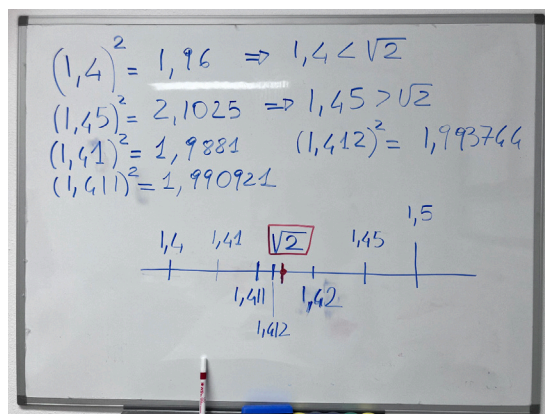 (1,4)² = 1,96 ⇒ 1,4 < √2
(1,45)² = 2,1025 ⇒ 1,45 > √2
(1,41)² = 1,9881 (1,412)² = 1,993744
(1,411)² = 1,990921
1,4 1,41 √2 1,45 1,5
1,411 1,42
1,412